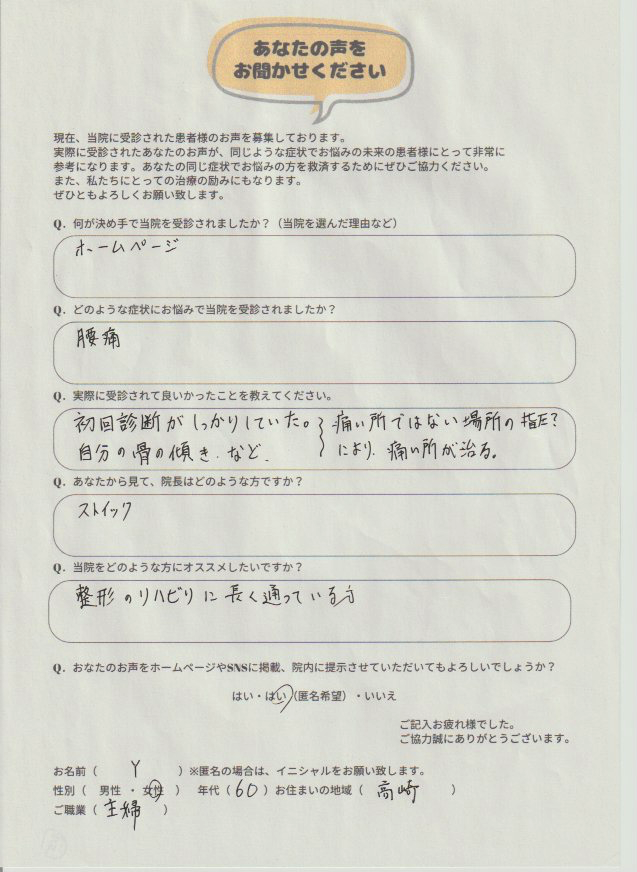 あなたの声を
お聞かせください
現在、当院に受診された患者様のお声を募集しております。
実際に受診されたあなたのお声が、同じような症状でお悩みの未来の患者様にとって非常に
参考になります。あなたの同じ症状でお悩みの方を救済するためにぜひご協力ください。
また、私たちにとっての治療の励みにもなります。
ぜひともよろしくお願い致します。
Q. 何が決め手で当院を受診されましたか？（当院を選んだ理由など）
ホームページ
Q. どのような症状にお悩みで当院を受診されましたか？
腰痛
Q. 実際に受診されて良いかったことを教えてください。
初回診断がしっかりしていた。 痛い所ではない場所の指圧?
自分の骨の傾き.など. により、痛い所が治る。
Q. あなたから見て、院長はどのような方ですか？
ストイック
Q. 当院をどのような方にオススメしたいですか？
整形のリハビリに長く通っている方
Q. おなたのお声をホームページやSNSに掲載、院内に提示させていただいてもよろしいでしょうか？
はい・はい（匿名希望）・いいえ
ご記入お疲れ様でした。
ご協力誠にありがとうございます。
お名前（ Y ）※匿名の場合は、イニシャルをお願い致します。
性別（ 男性 ・ 女性 ） 年代（ 60 ）お住まいの地域（ 高崎 ）
ご職業（ 主婦 ）